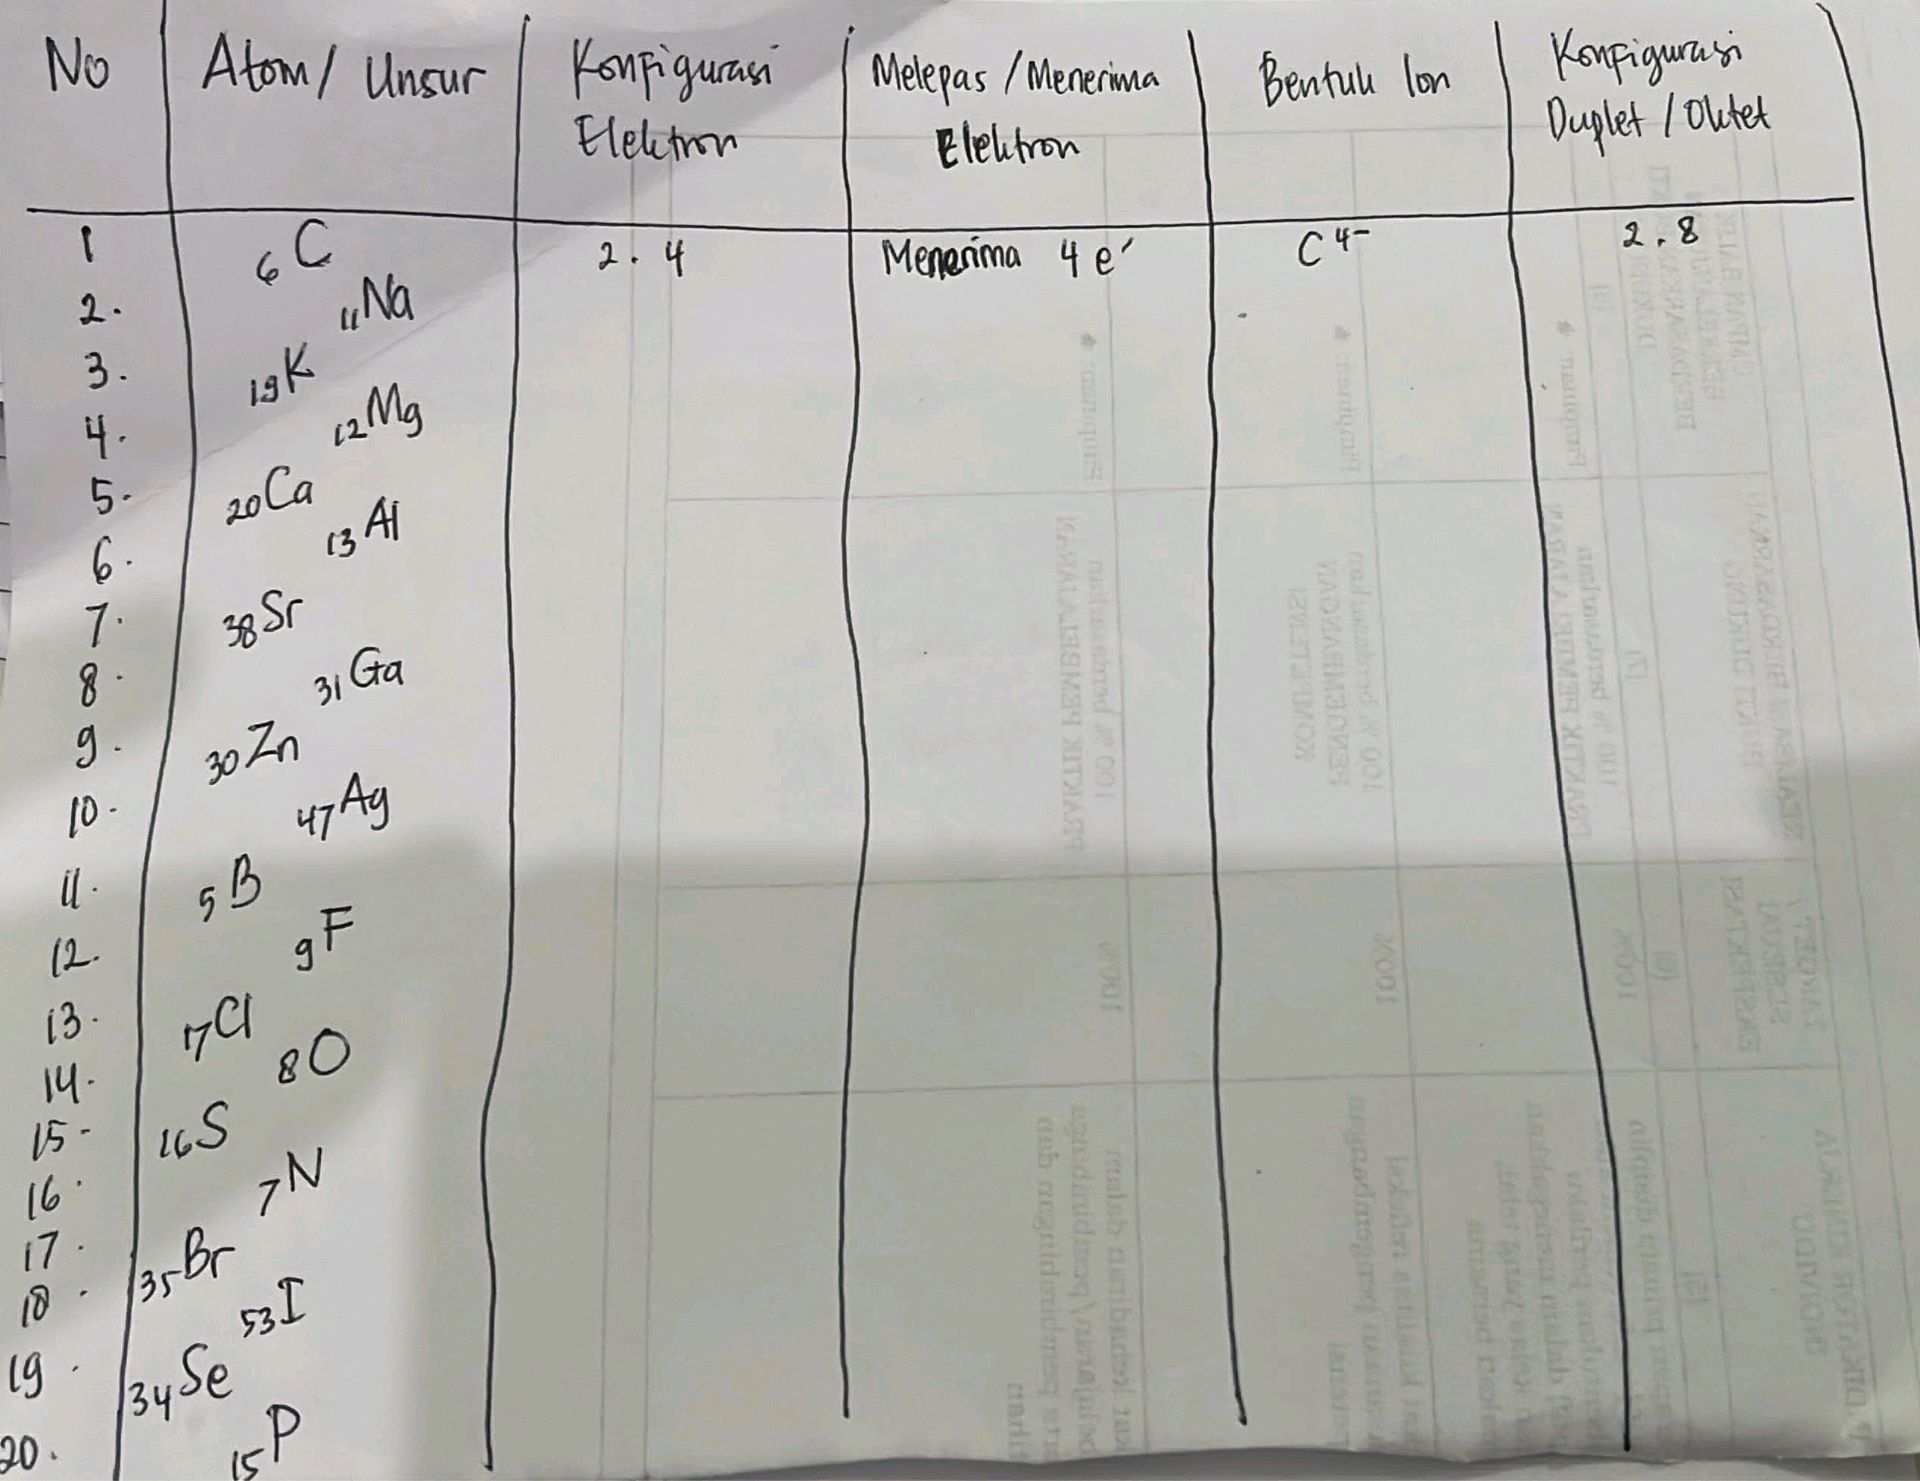 No Atom/ Unsur Konfigurasi Elektron Melepas / Menerima Elektron Bentuk Ion Konfigurasi Duplet / Oktet
1 ₆C 2 . 4 Menerima 4 e⁻ C⁴⁻ 2 . 8
2. ₁₁Na
3. ₁₉K
4. ₁₂Mg
5. ₂₀Ca
6. ₁₃Al
7. ₃₈Sr
8. ₃₁Ga
9. ₃₀Zn
10. ₄₇Ag
11. ₅B
12. ₉F
13. ₁₇Cl
14. ₈O
15. ₁₆S
16. ₇N
17. ₃₅Br
18. ₅₃I
19. ₃₄Se
20. ₁₅P